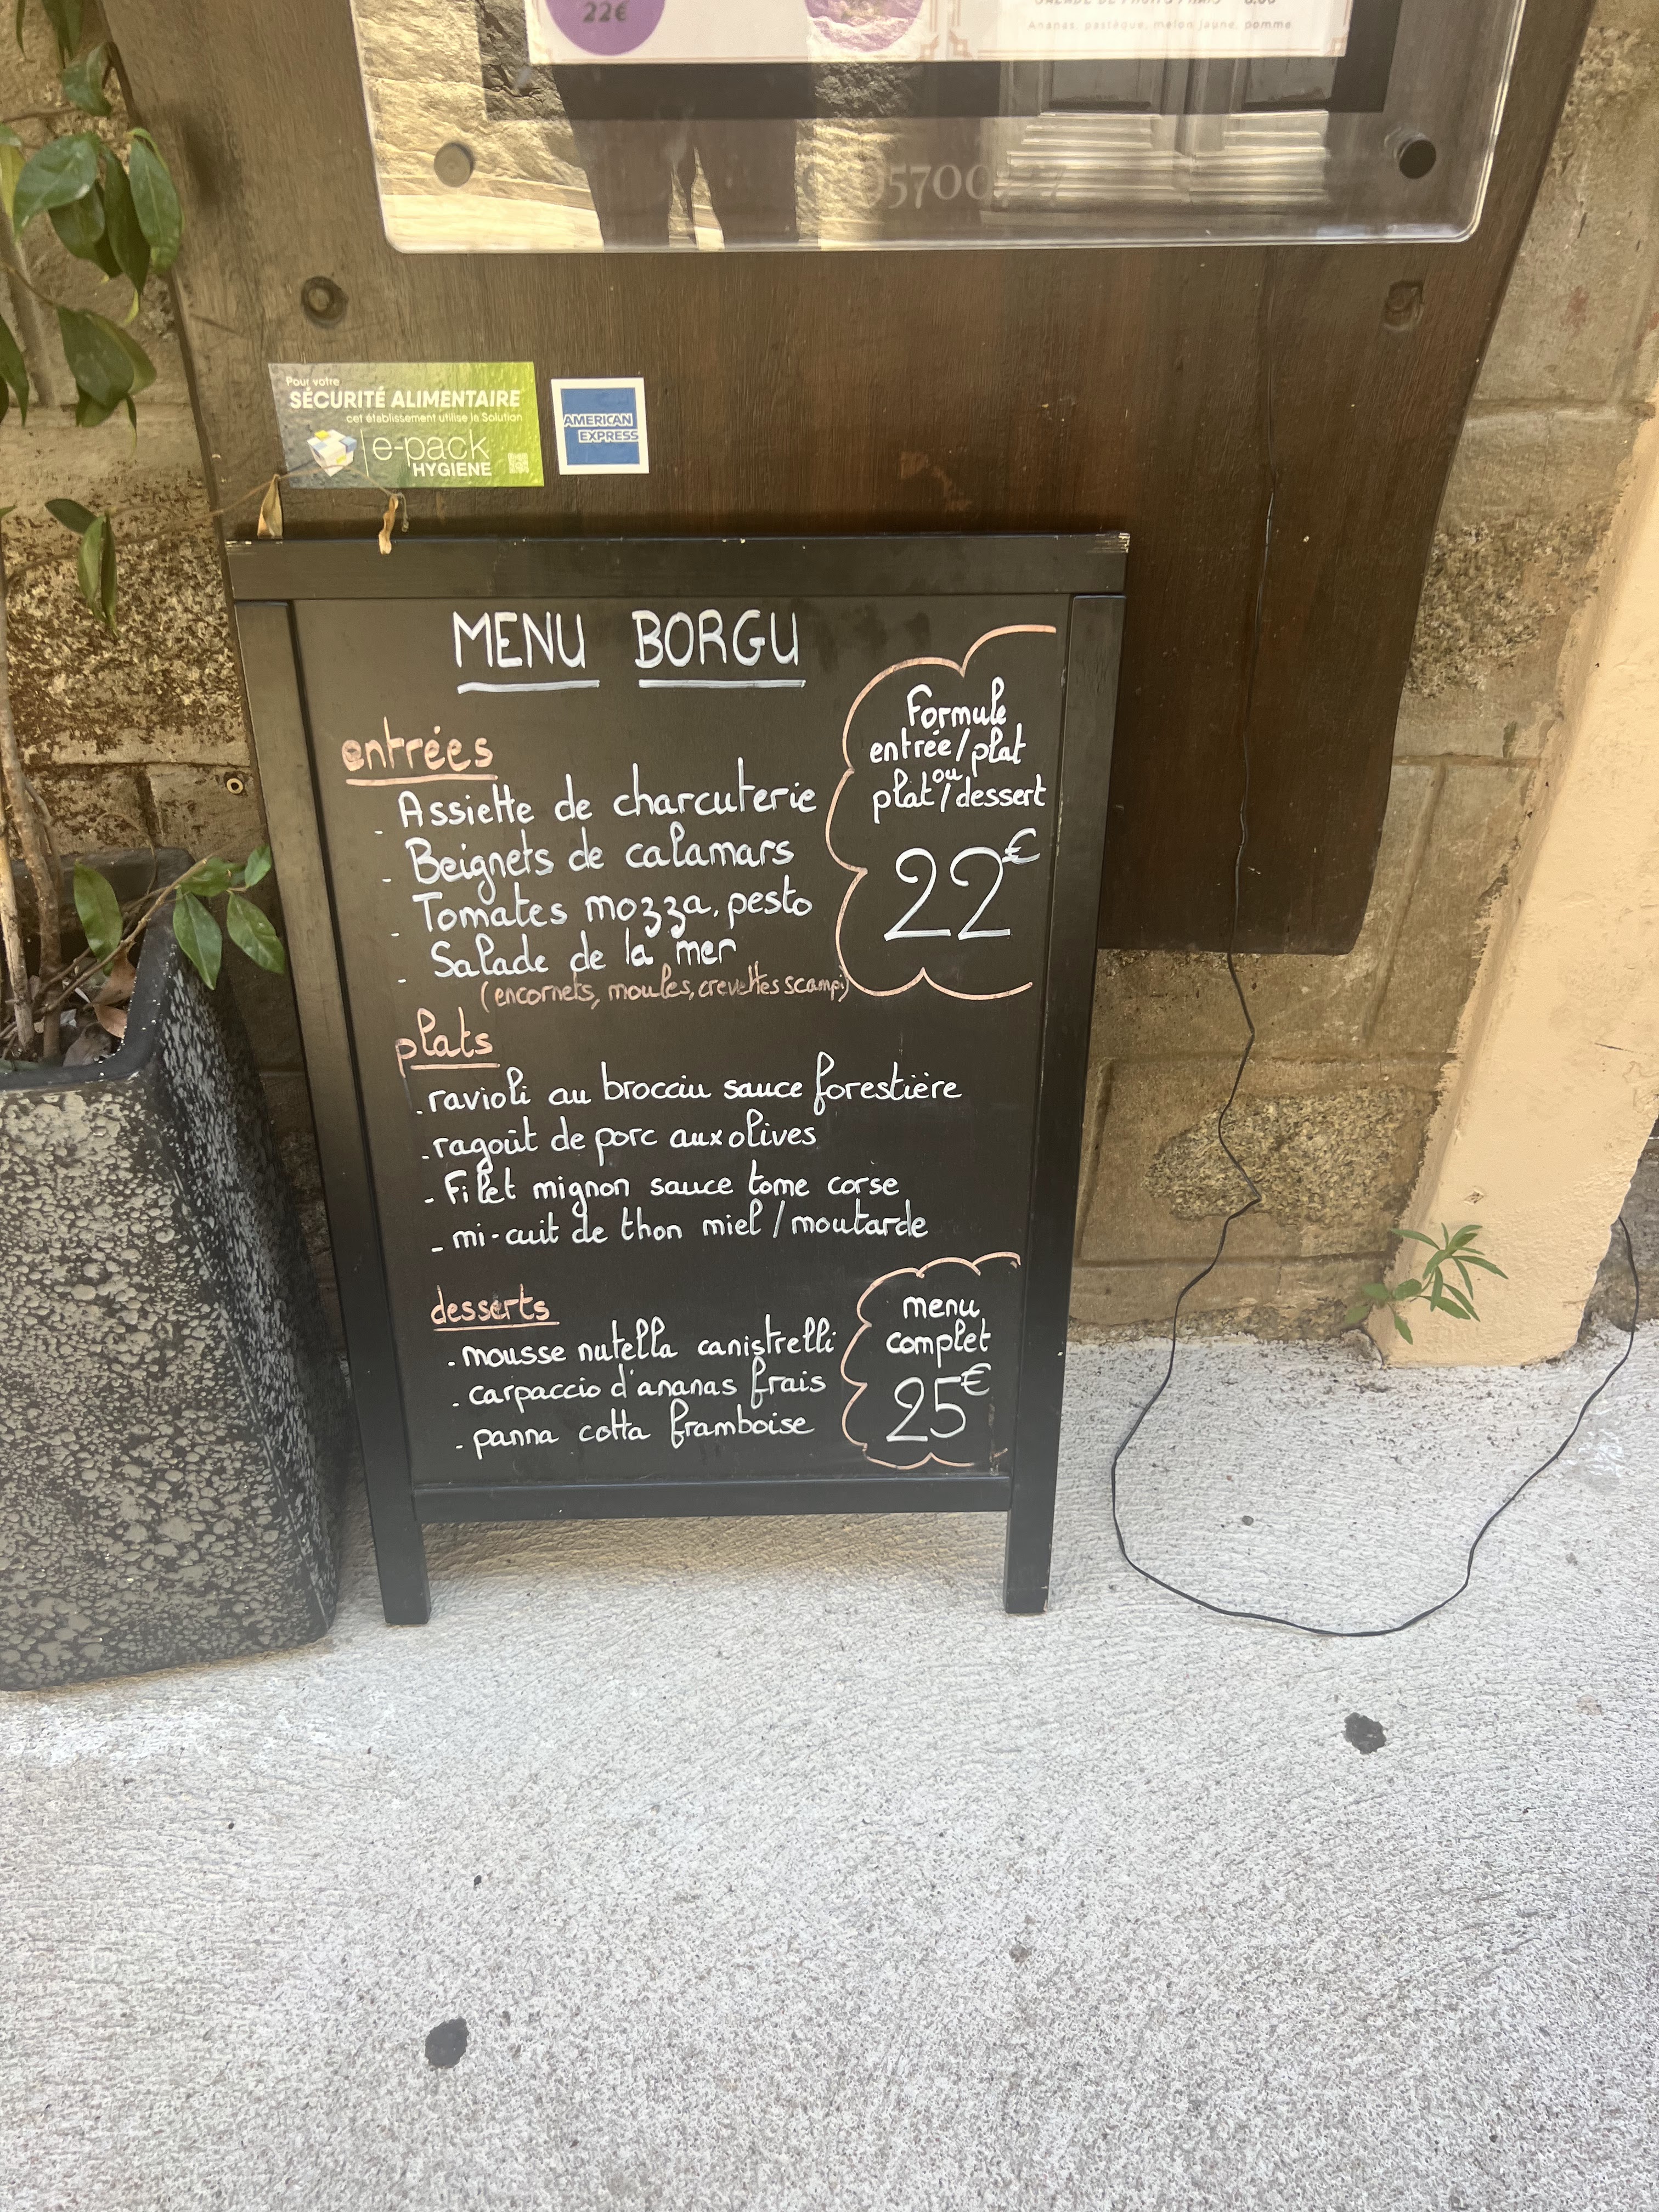 22€
Ananas, pastèque, melon jaune, pomme
Pour votre
SÉCURITÉ ALIMENTAIRE
cet établissement utilise la Solution
e-pack
HYGIENE
AMERICAN
EXPRESS
MENU BORGU
entrées
- Assiette de charcuterie
- Beignets de calamars
- Tomates mozza, pesto
- Salade de la mer
(encornets, moules, crevettes scampi)
Formule
entrée/plat
ou
plat/dessert
22€
plats
- ravioli au brocciu sauce forestière
- ragoût de porc aux olives
- Filet mignon sauce tome corse
- mi-cuit de thon miel / moutarde
desserts
- mousse nutella canistrelli
- carpaccio d'ananas frais
- panna cotta framboise
menu
complet
25€